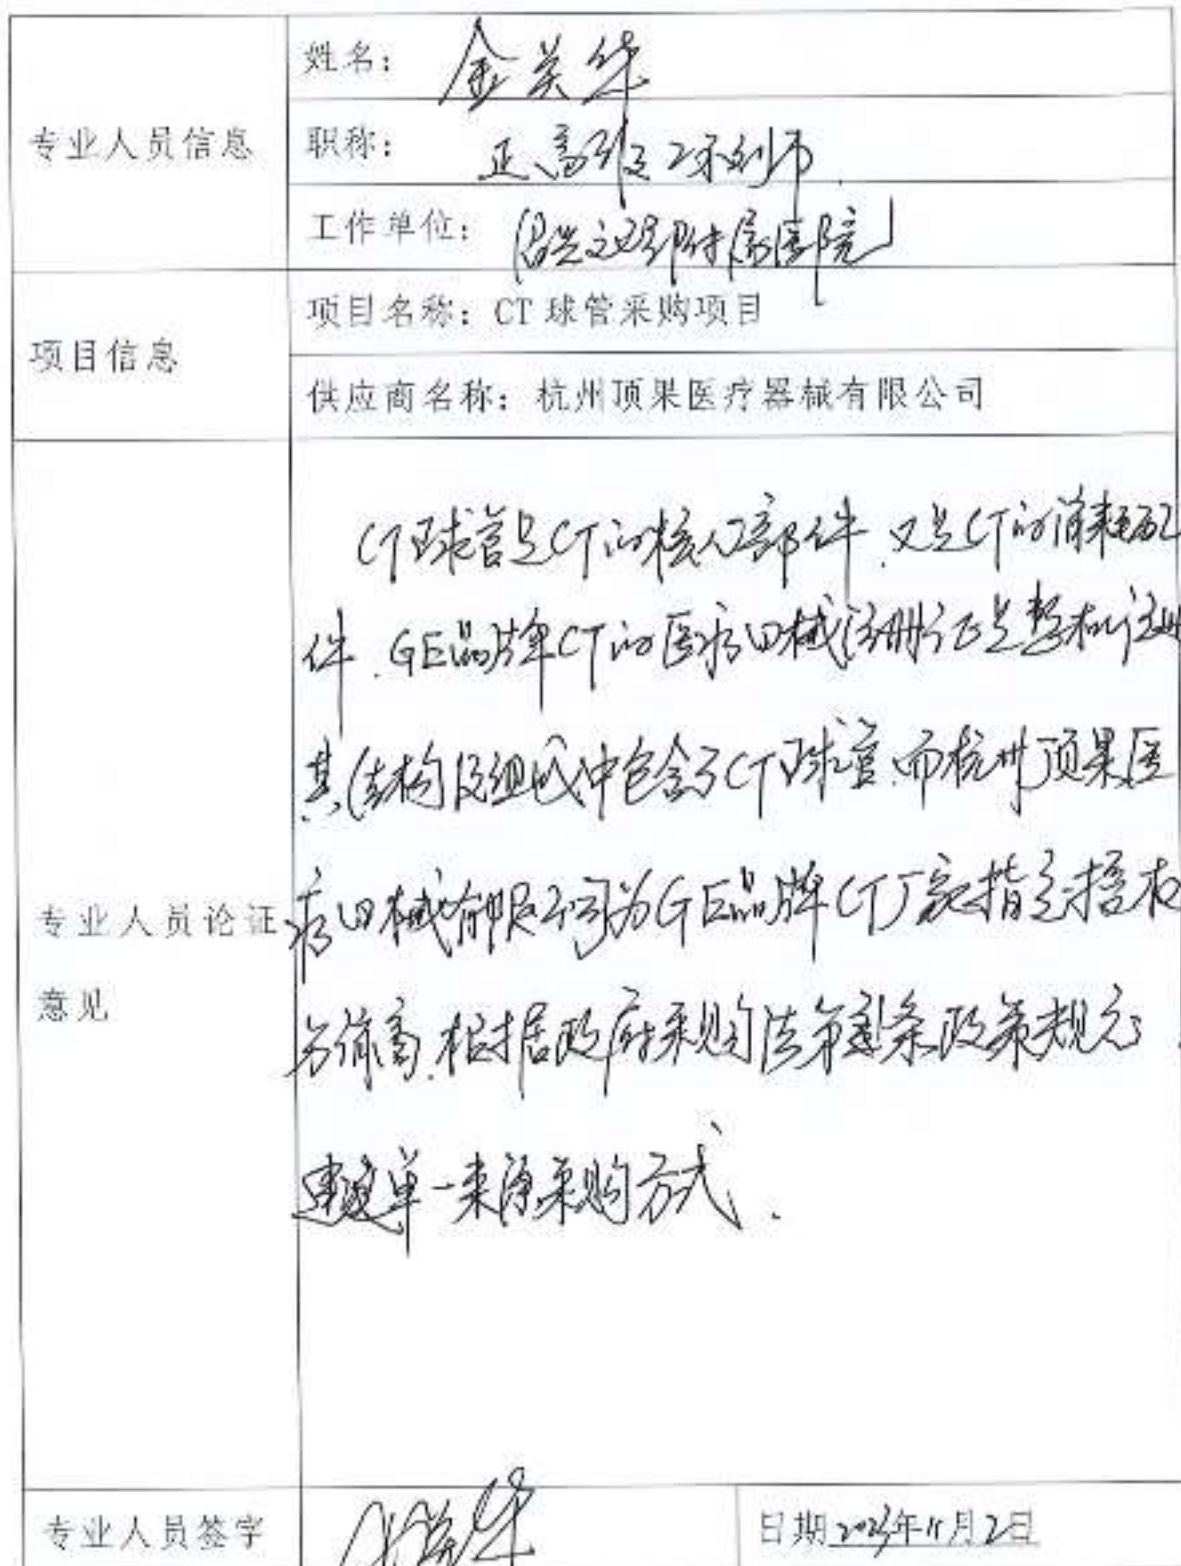 姓名：金美华
专业人员信息
职称：正高级工程师
工作单位：绍兴文理附属医院
项目信息
项目名称：CT球管采购项目
供应商名称：杭州顶果医疗器械有限公司
CT球管是CT的核心部件，又是CT的消耗配
件。GE品牌CT的医疗器械注册证是整机注册
其结构及组成中包含了CT球管，而杭州顶果医
专业人员论证
意见
疗器械有限公司为GE品牌CT厂家指定授权
经销商，根据政府采购法第条政策规定，
建议单一来源采购方式。
专业人员签字
金美华
日期2023年11月2日